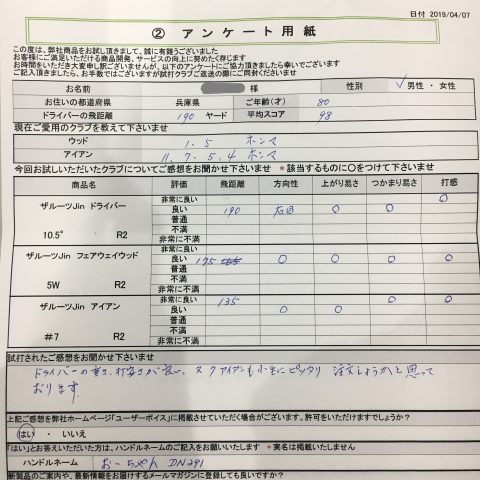 日付 2019/04/07
② アンケート用紙
この度は、弊社商品をお試し頂きまして、誠に有難うございました
お客様にご満足いただける商品開発、サービスの向上に努めたく存じます
お時間をいただき大変申し訳ございませんが、以下のアンケートにご協力頂きましたら幸いでございます
ご記入頂きましたら、お手数ではございますが試打クラブご返送の際にご同封くださいませ
お名前 様 性別 ✓男性 ・ 女性
お住いの都道府県 兵庫県 ご年齢(才) 80
ドライバーの飛距離 190 ヤード 平均スコア 98
現在ご愛用のクラブを教えて下さいませ
ウッド 1. 5 ホンマ
アイアン 11. 7. 5. 4 ホンマ
今回お試しいただいたクラブについてご感想をお聞かせ下さいませ *該当するものに〇をつけて下さいませ
商品名 評価 飛距離 方向性 上がり易さ つかまり易さ 打感
ザルーツJin ドライバー
10.5° R2
非常に良い 〇
良い 190 〇 〇
普通
不満
非常に不満
ザルーツJin フェアウェイウッド
5W R2
非常に良い
良い 175 〇 〇 〇 〇
普通
不満
非常に不満
ザルーツJin アイアン
#7 R2
非常に良い 135 〇 〇
良い 〇 〇
普通
不満
非常に不満
試打されたご感想をお聞かせ下さいませ
ドライバーの重さ、打安さが良い、又アイアンも小生にピッタリ 注文しようかと思って
おります.
上記ご感想を弊社ホームページ「ユーザーボイス」に掲載させていただく場合がございます。許可をいただけますでしょうか?
はい ・ いいえ
「はい」とお答えいただいた方は、ハンドルネームのご記入をお願いいたします *実名は掲載いたしません
ハンドルネーム おーちゃん DN291
新製品のご案内や、最新情報をお届けするメールマガジンに登録しても良いですか?